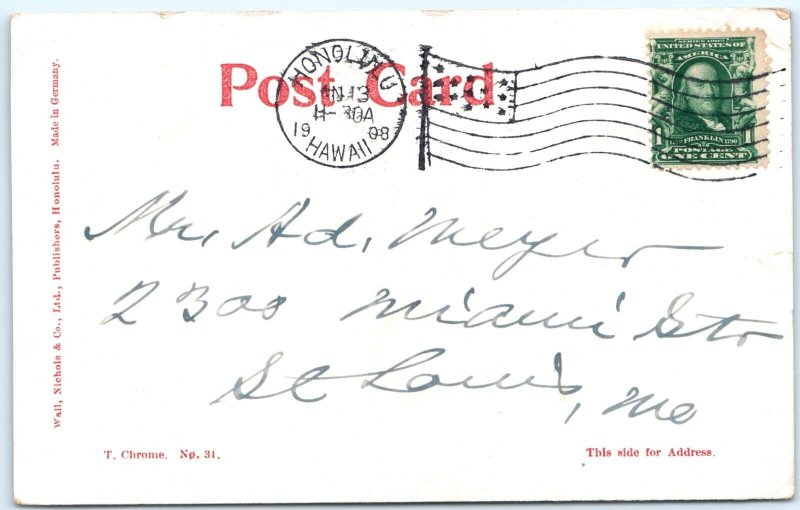 Post Card
HONOLULU
13
1908
HAWAII
SERIES 1902
UNITED STATES OF
AMERICA
FRANKLIN 1790
POSTAGE
ONE CENT
Mr. Ad. Meyer
2300 Miami Str
St Louis, Mo
Wall, Nichols & Co., Ltd., Publishers, Honolulu. Made in Germany.
T. Chrome. No. 31.
This side for Address.